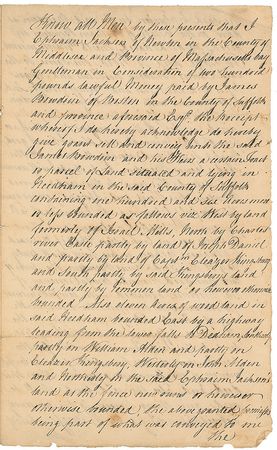 Know all Men by these presents that I
Ephraim Jackson of Newton in the County of
Middlesex and Province of Massachusetts bay
Gentleman in Consideration of two hundred
pounds lawful Money paid by James
Bowdoin of Boston in the County of Suffolk
and province aforesaid Esqr. the receipt
whereof I do hereby acknowledge do hereby
give grant sell and convey unto the said
James Bowdoin and his Heirs a certain Tract
or parcel of Land situated and lying in
Needham in the said County of Suffolk
containing one hundred and six Acres more
or less bounded as follows viz. West by land
formerly of Israel Mills, North by Charles
river East partly by land of Joseph Daniel
and partly by land of Captn Eleazer Kingsbury
and South partly by said Kingsburys land
and partly by Common land or however otherwise
bounded. Also eleven Acres of wood land in
said Needham bounded East by a highway
leading from the lower falls to Dedham,
partly on William Alden and partly on
Eleazer Kingsbury, Westerly on John Alden
and Northerly on the said Ephraim Jackson's
land as the fence now runs or however
otherwise bounded, the above granted premises
being part of what was conveyed to me
the